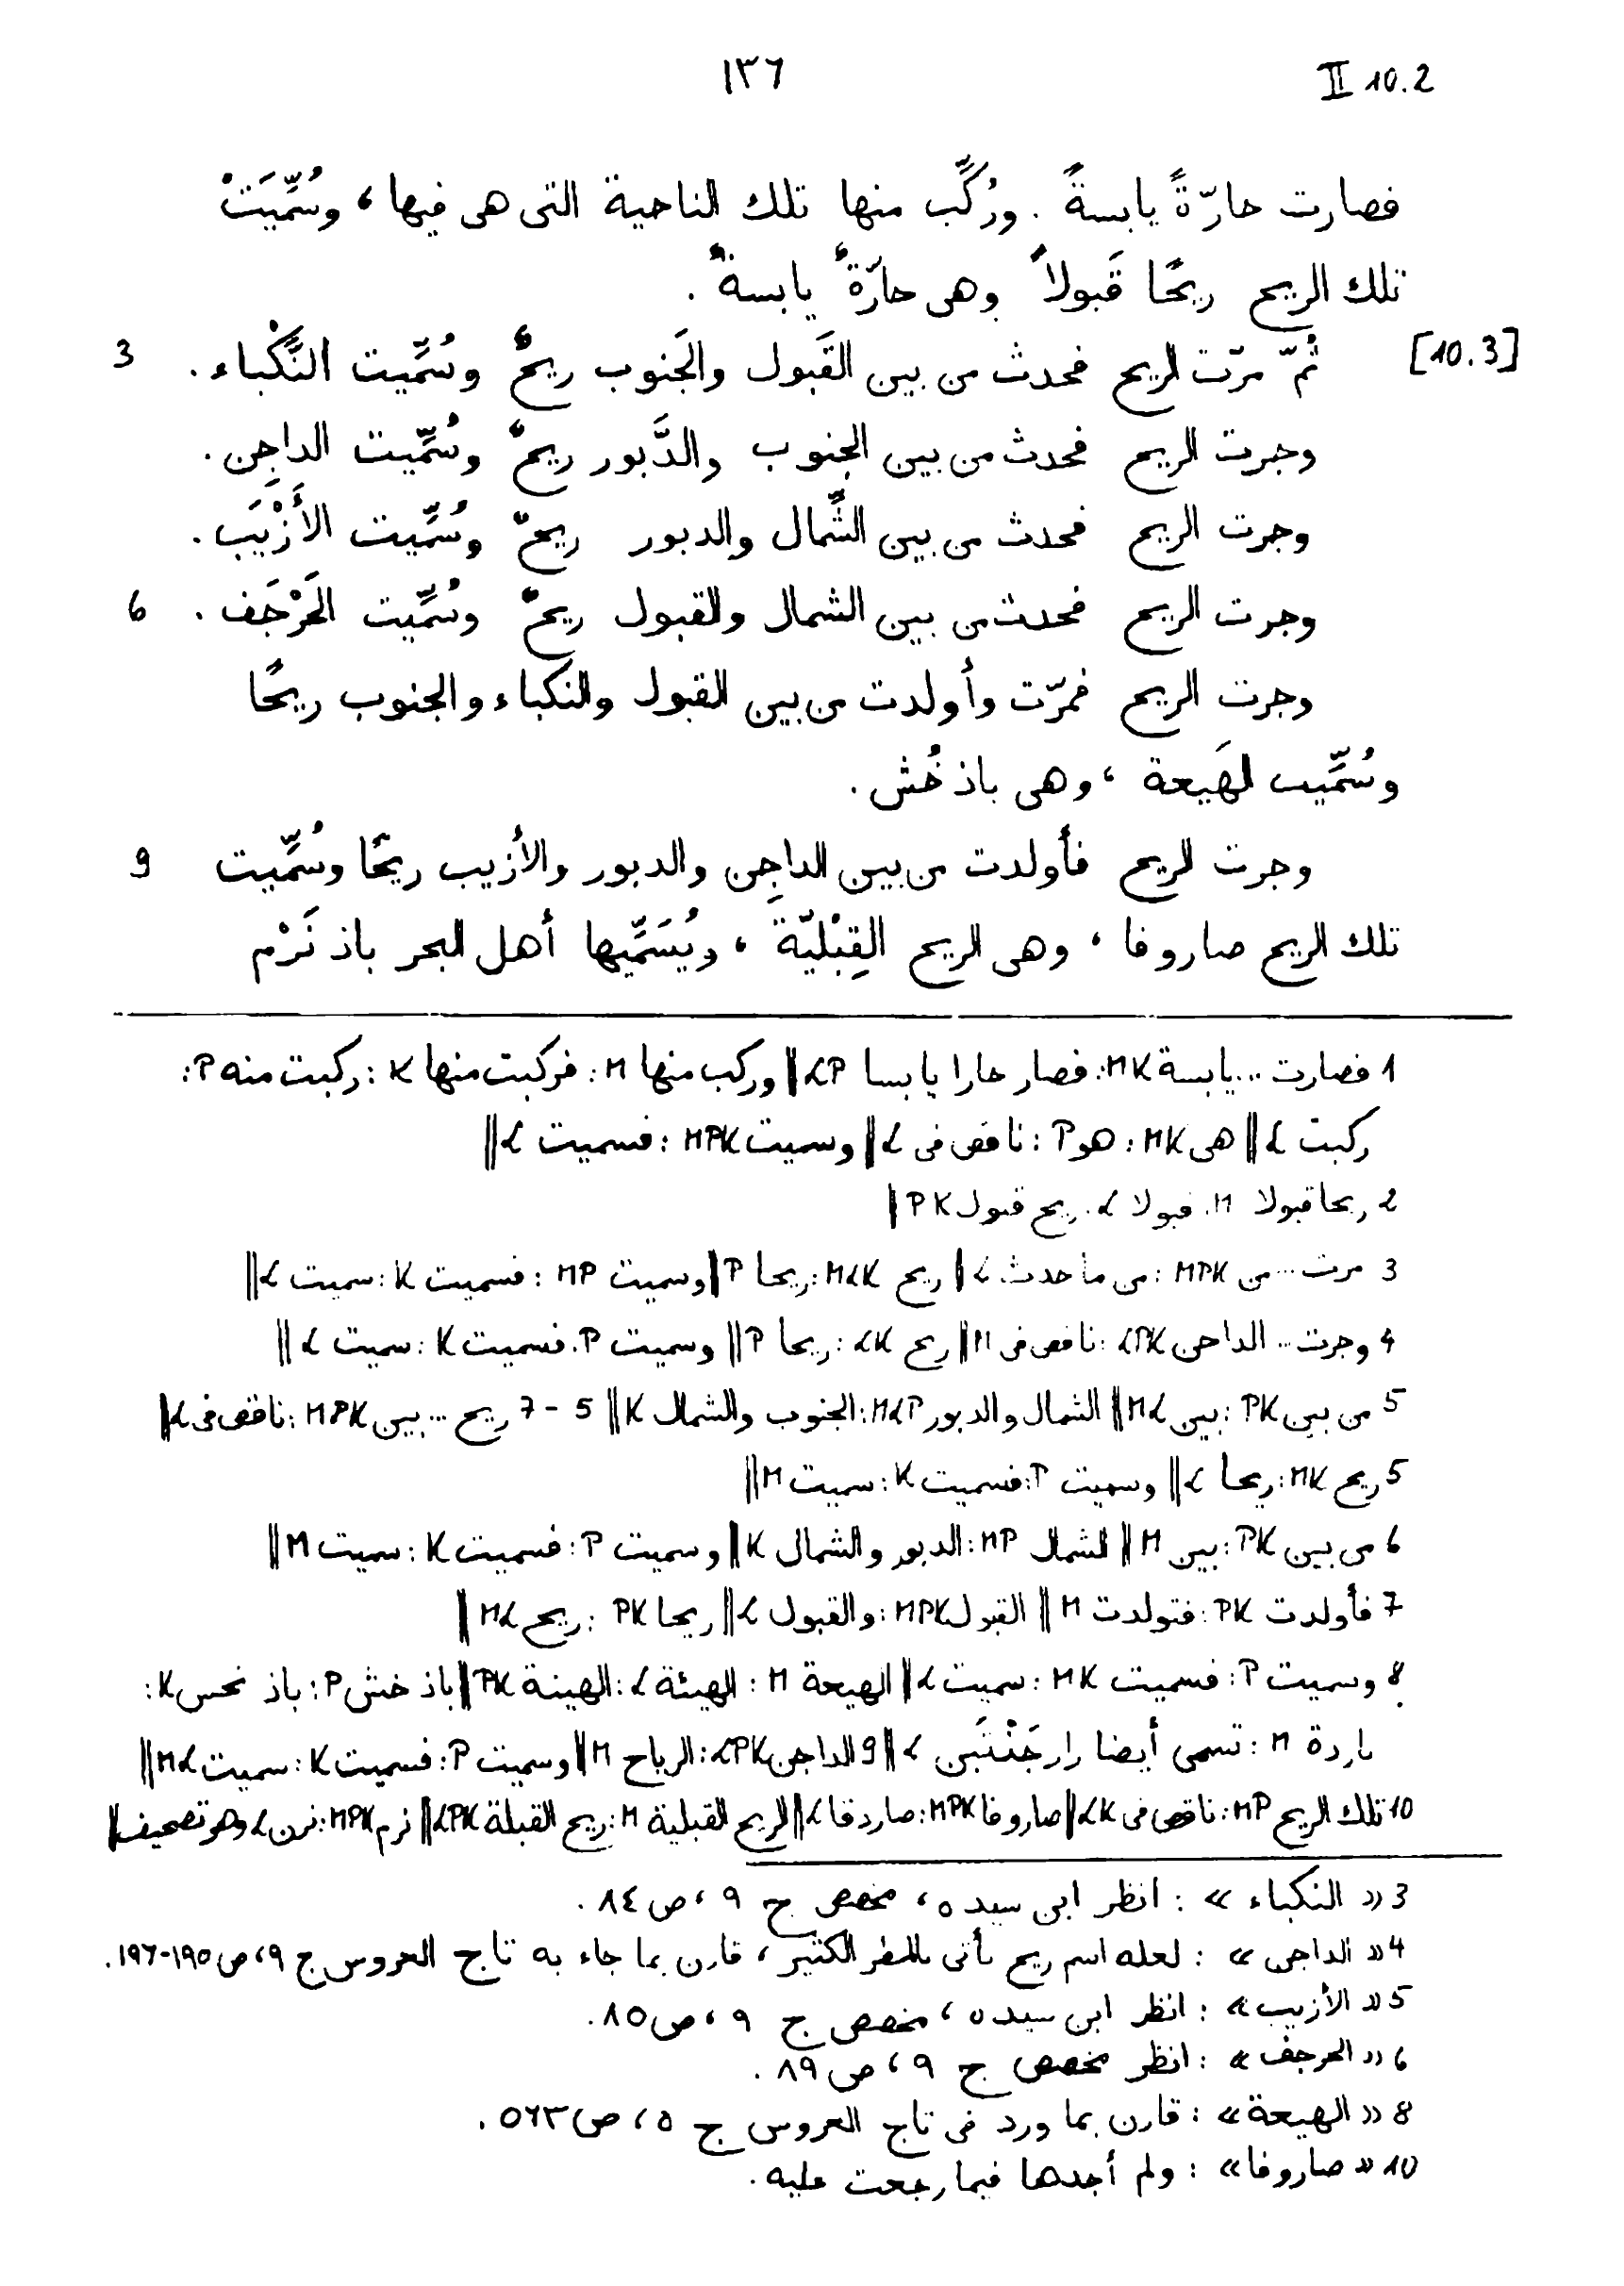 ١٣٦ II 10.2
فصارت حارّةً يابسةً . ورُكِّب منها تلك الناحية التى هى فيها ، وسُمِّيَتْ
تلك الريح ريحًا قَبولاً وهى حارّةٌ يابسةٌ .
[10.3] ثُمّ مرّت الريح فحدث من بين القَبول والجَنوب ريحٌ وسُمِّيت النَّكْباء . 3
وجرت الريح فحدث من بين الجنوب والدَّبور ريحٌ وسُمِّيت الداجِن .
وجرت الريح فحدث من بين الشَّمال والدبور ريحٌ وسُمِّيت الأَزْيَب .
وجرت الريح فحدث من بين الشمال والقبول ريحٌ وسُمِّيت الحَرْجَف . 6
وجرت الريح فمرّت وأولدت من بين القبول والنكباء والجنوب ريحًا
وسُمِّيت الهَيعة ، وهى باذ خُش .
وجرت الريح فأولدت من بين الداجِن والدبور والأزيب ريحًا وسُمِّيت 9
تلك الريح صاروفا ، وهى الريح القِبْليّة ، ويُسَمِّيها أهل البحر باذ نَرْم
1 فصارت ... يابسة MK : فصار حارا يابسا LP || وركب منها M : فركبت منها K : ركبت منه P :
ركبت L || هى MK : هو P : ناقص فى L || وسميت MPK : فسميت L ||
2 ريحا قبولا M : قبولا L : ريح قبول PK ||
3 مرت ... من MPK : من ما حدث L || ريح MLK : ريحا P || وسميت MP : فسميت K : سميت L ||
4 وجرت ... الداجن LPK : ناقص فى M || ريح LK : ريحا P || وسميت P : فسميت K : سميت L ||
5 من بين PK : بين ML || الشمال والدبور MLP : الجنوب والشمال K || 5 - 7 ريح ... بين MPK : ناقص فى L ||
5 ريح MK : ريحا L || وسميت P : فسميت K : سميت M ||
6 من بين PK : بين M || الشمال MP : الدبور والشمال K || وسميت P : فسميت K : سميت M ||
7 فأولدت PK : فتولدت M || القبول MPK : والقبول L || ريحا PK : ريح ML ||
8 وسميت P : فسميت MK : سميت L || الهيعة M : الهيئة L : الهينة PK || باذ خش P : باذ نحس K :
باردة M : تسمى أيضا L || 9 الداجن LPK : الرياح M || وسميت P : فسميت K : سميت ML ||
10 تلك الريح MP : ناقص فى LK || صاروفا MPK : صاردفا L || الريح القبلية M : ريح القبلة LPK || نرم MPK : نرن L وهو تصحيف ||
3 « النكباء » : انظر ابن سيده ، مخصص ج ٩ ، ص ٨٤ .
4 « الداجن » : لعله اسم ريح تأتى بالمطر الكثير ، قارن بما جاء به تاج العروس ج ٩ ، ص ١٩٥-١٩٦ .
5 « الأزيب » : انظر ابن سيده ، مخصص ج ٩ ، ص ٨٥ .
6 « الحرجف » : انظر مخصص ج ٩ ، ص ٨٩ .
8 « الهيعة » : قارن بما ورد فى تاج العروس ج ٥ ، ص ٥٦٣ .
10 « صاروفا » : ولم أجدها فيما رجعت عليه .